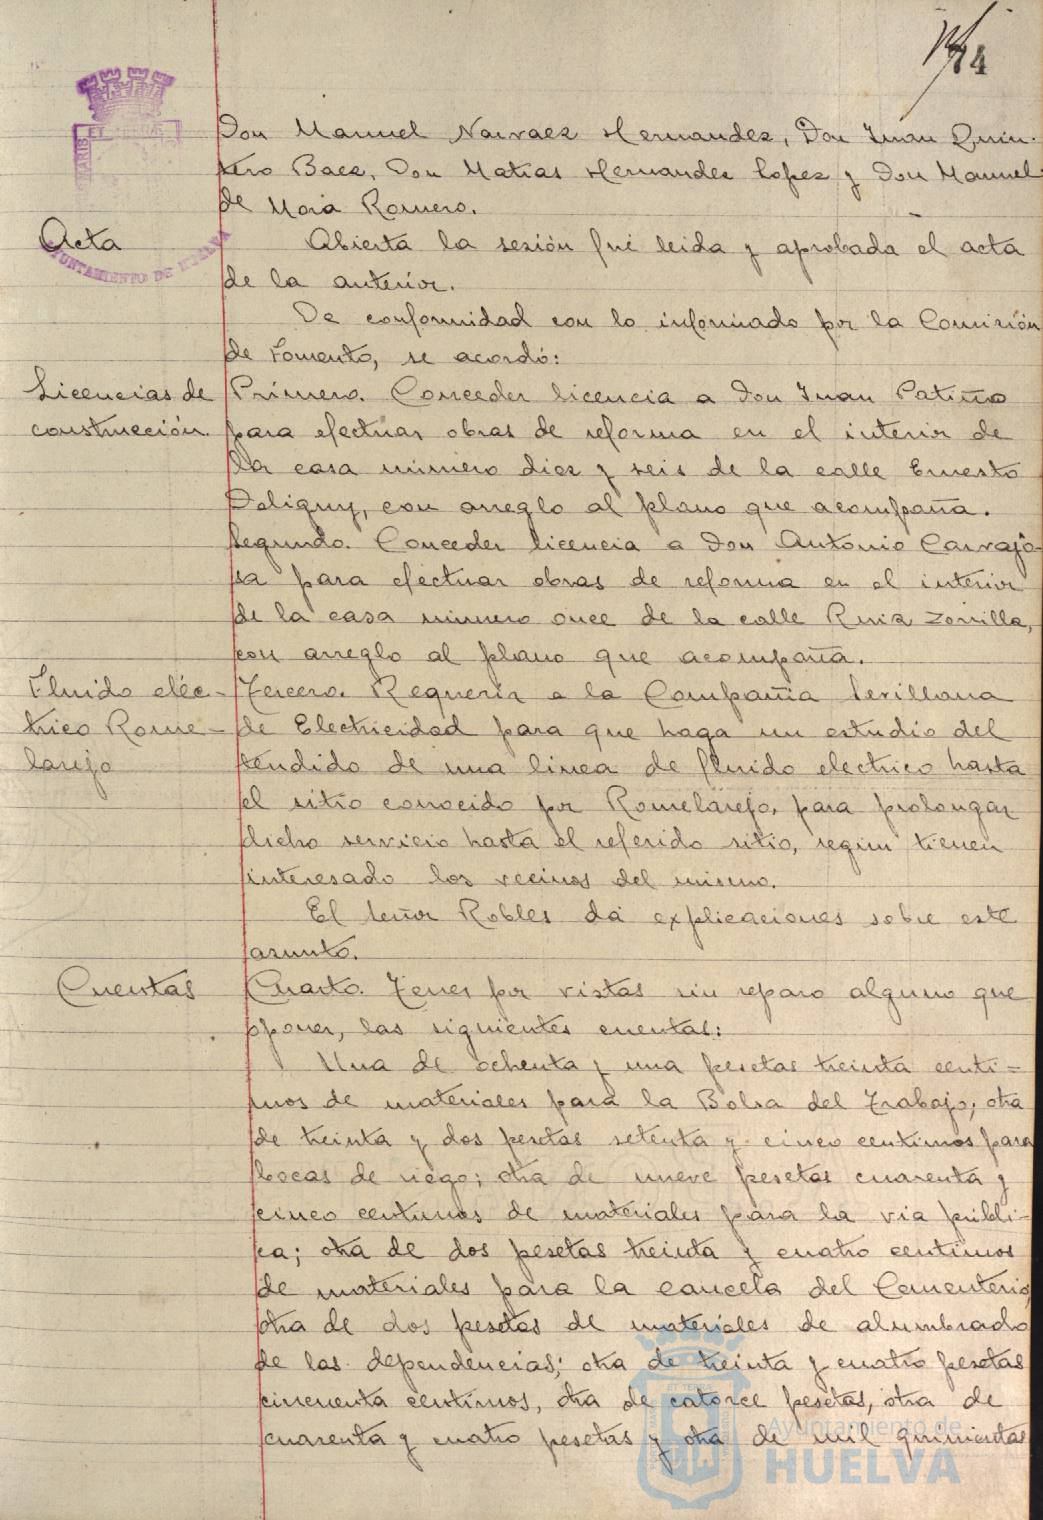 74
Don Manuel Narvaez Hernandez, Don Juan Quin-
tero Baez, Don Matias Hernandez Lopez y Don Manuel
de Mora Romero.
Acta
Abierta la sesión fué leida y aprobada el acta
de la anterior.
De conformidad con lo informado por la Comisión
de Fomento, se acordó:
Licencias de
construcción.
Primero. Conceder licencia a Don Juan Patiño
para efectuar obras de reforma en el interior de
la casa número diez y seis de la calle Ernesto
Deligny, con arreglo al plano que acompaña.
Segundo. Conceder licencia a Don Antonio Carvajo-
sa para efectuar obras de reforma en el interior
de la casa número once de la calle Ruiz Zorrilla,
con arreglo al plano que acompaña.
Fluido eléc-
trico Rome-
larejo
Tercero. Requerir a la Compañia Sevillana
de Electricidad para que haga un estudio del
tendido de una linea de fluido electrico hasta
el sitio conocido por Romelarejo, para prolongar
dicho servicio hasta el referido sitio, según tienen
interesado los vecinos del mismo.
El señor Robles dá explicaciones sobre este
asunto.
Cuentas
Cuarto. Tener por vistas sin reparo alguno que
oponer, las siguientes cuentas:
Una de ochenta y una pesetas treinta centi-
mos de materiales para la Bolsa del Trabajo; otra
de treinta y dos pesetas setenta y cinco centimos para
bocas de riego; otra de nueve pesetas cuarenta y
cinco centimos de materiales para la via públi-
ca; otra de dos pesetas treinta y cuatro centimos
de materiales para la cancela del Cementerio;
otra de dos pesetas de materiales de alumbrado
de las dependencias; otra de treinta y cuatro pesetas
cincuenta centimos, otra de catorce pesetas, otra de
cuarenta y cuatro pesetas y otra de mil quinientas
AYUNTAMIENTO DE HUELVA
Ayuntamiento de
HUELVA